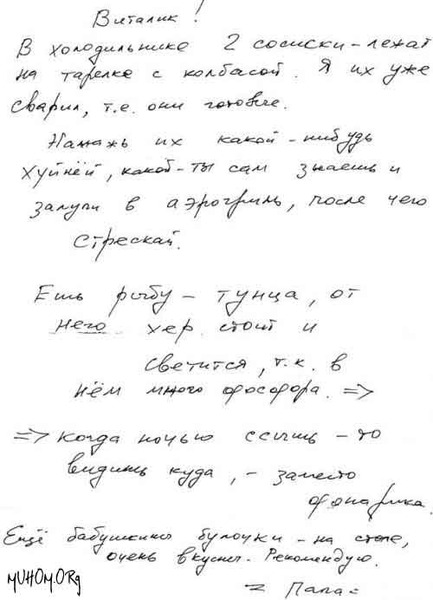 Виталик!
В холодильнике 2 сосиски - лежат
на тарелке с колбасой. Я их уже
сварил, т.е. они готовые.
Намажь их какой-нибудь
хуйнёй, какой - ты сам знаешь и
залупи в аэрогриль, после чего
стрескай.
Ешь рыбу - тунца, от
него хер стоит и
светится, т.к. в
нём много фосфора. =>
=> когда ночью ссышь - то
видишь куда, - заместо
фонарика.
Ещё бабушкины булочки - на столе,
очень вкусные. Рекомендую.
= Папа =
MUHOM.ORG